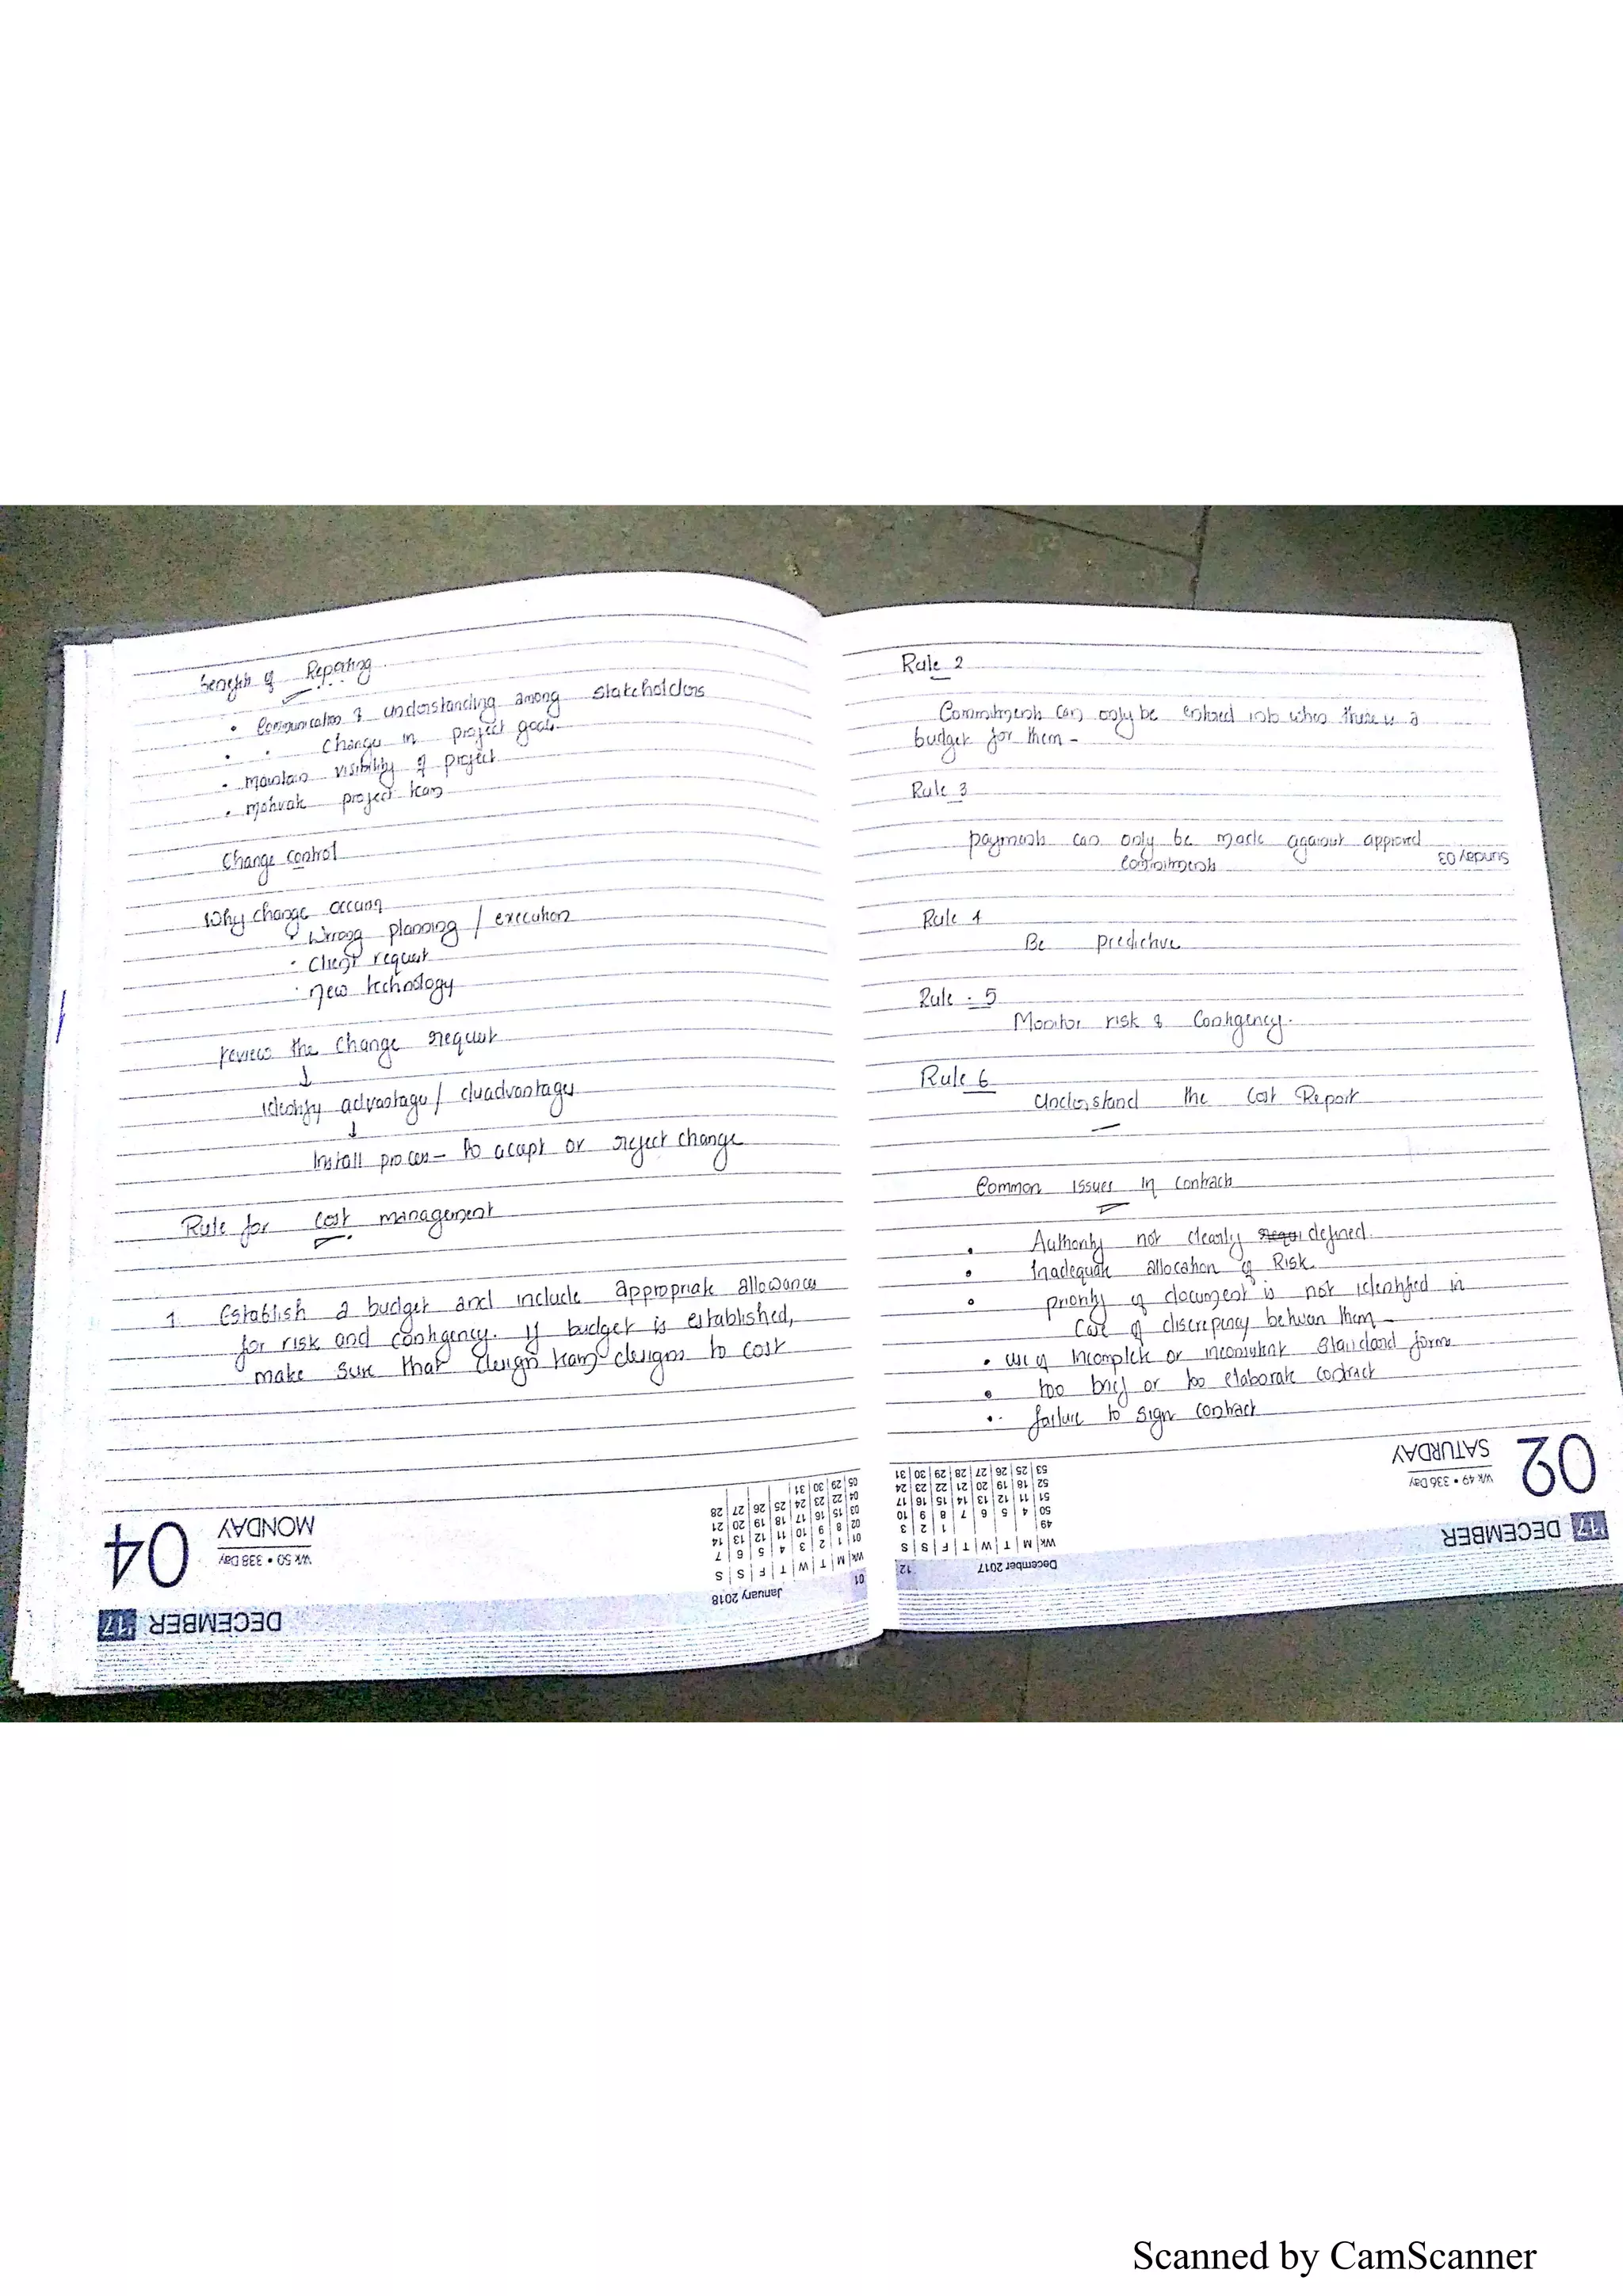 Benefits of Reporting
• Communication & understanding among stakeholders
• • Changes in project goals
• Maintain visibility of project
• Motivate project team
Change control
Why change occurs
• Wrong planning / execution
• Client request
• New technology
review the change request
↓
identify advantages / disadvantages
↓
Install process - to accept or reject change
Rule for cost management
1. Establish a budget and include appropriate allowances
for risk and contigency. If budget is established,
make sure that design team designs to cost
04
MONDAY
Wk 50 • 338 Day
January 2018
01
Wk M T W T F S S
01 1 2 3 4 5 6 7
02 8 9 10 11 12 13 14
03 15 16 17 18 19 20 21
04 22 23 24 25 26 27 28
05 29 30 31
DECEMBER '17
Rule 2
Commitments can only be entered into when there is a
budget for them -
Rule 3
payments can only be made against approved
commitments
Sunday 03
Rule 4
Be predictive
Rule - 5
Monitor risk & Contigency.
Rule 6
Understand the Cost Report
Common issues in contracts
• Authority not clearly defined.
• Inadequate allocation of Risk
• priority of document is not identified in
case of discrepency between them
• use of incomplete or inconsistent standard forms
• too brief or too elaborate contract
• failure to sign contract
02
SATURDAY
Wk 49 • 336 Day
December 2017
12
Wk M T W T F S S
49 1 2 3
50 4 5 6 7 8 9 10
51 11 12 13 14 15 16 17
52 18 19 20 21 22 23 24
53 25 26 27 28 29 30 31
'17 DECEMBER
Scanned by CamScanner